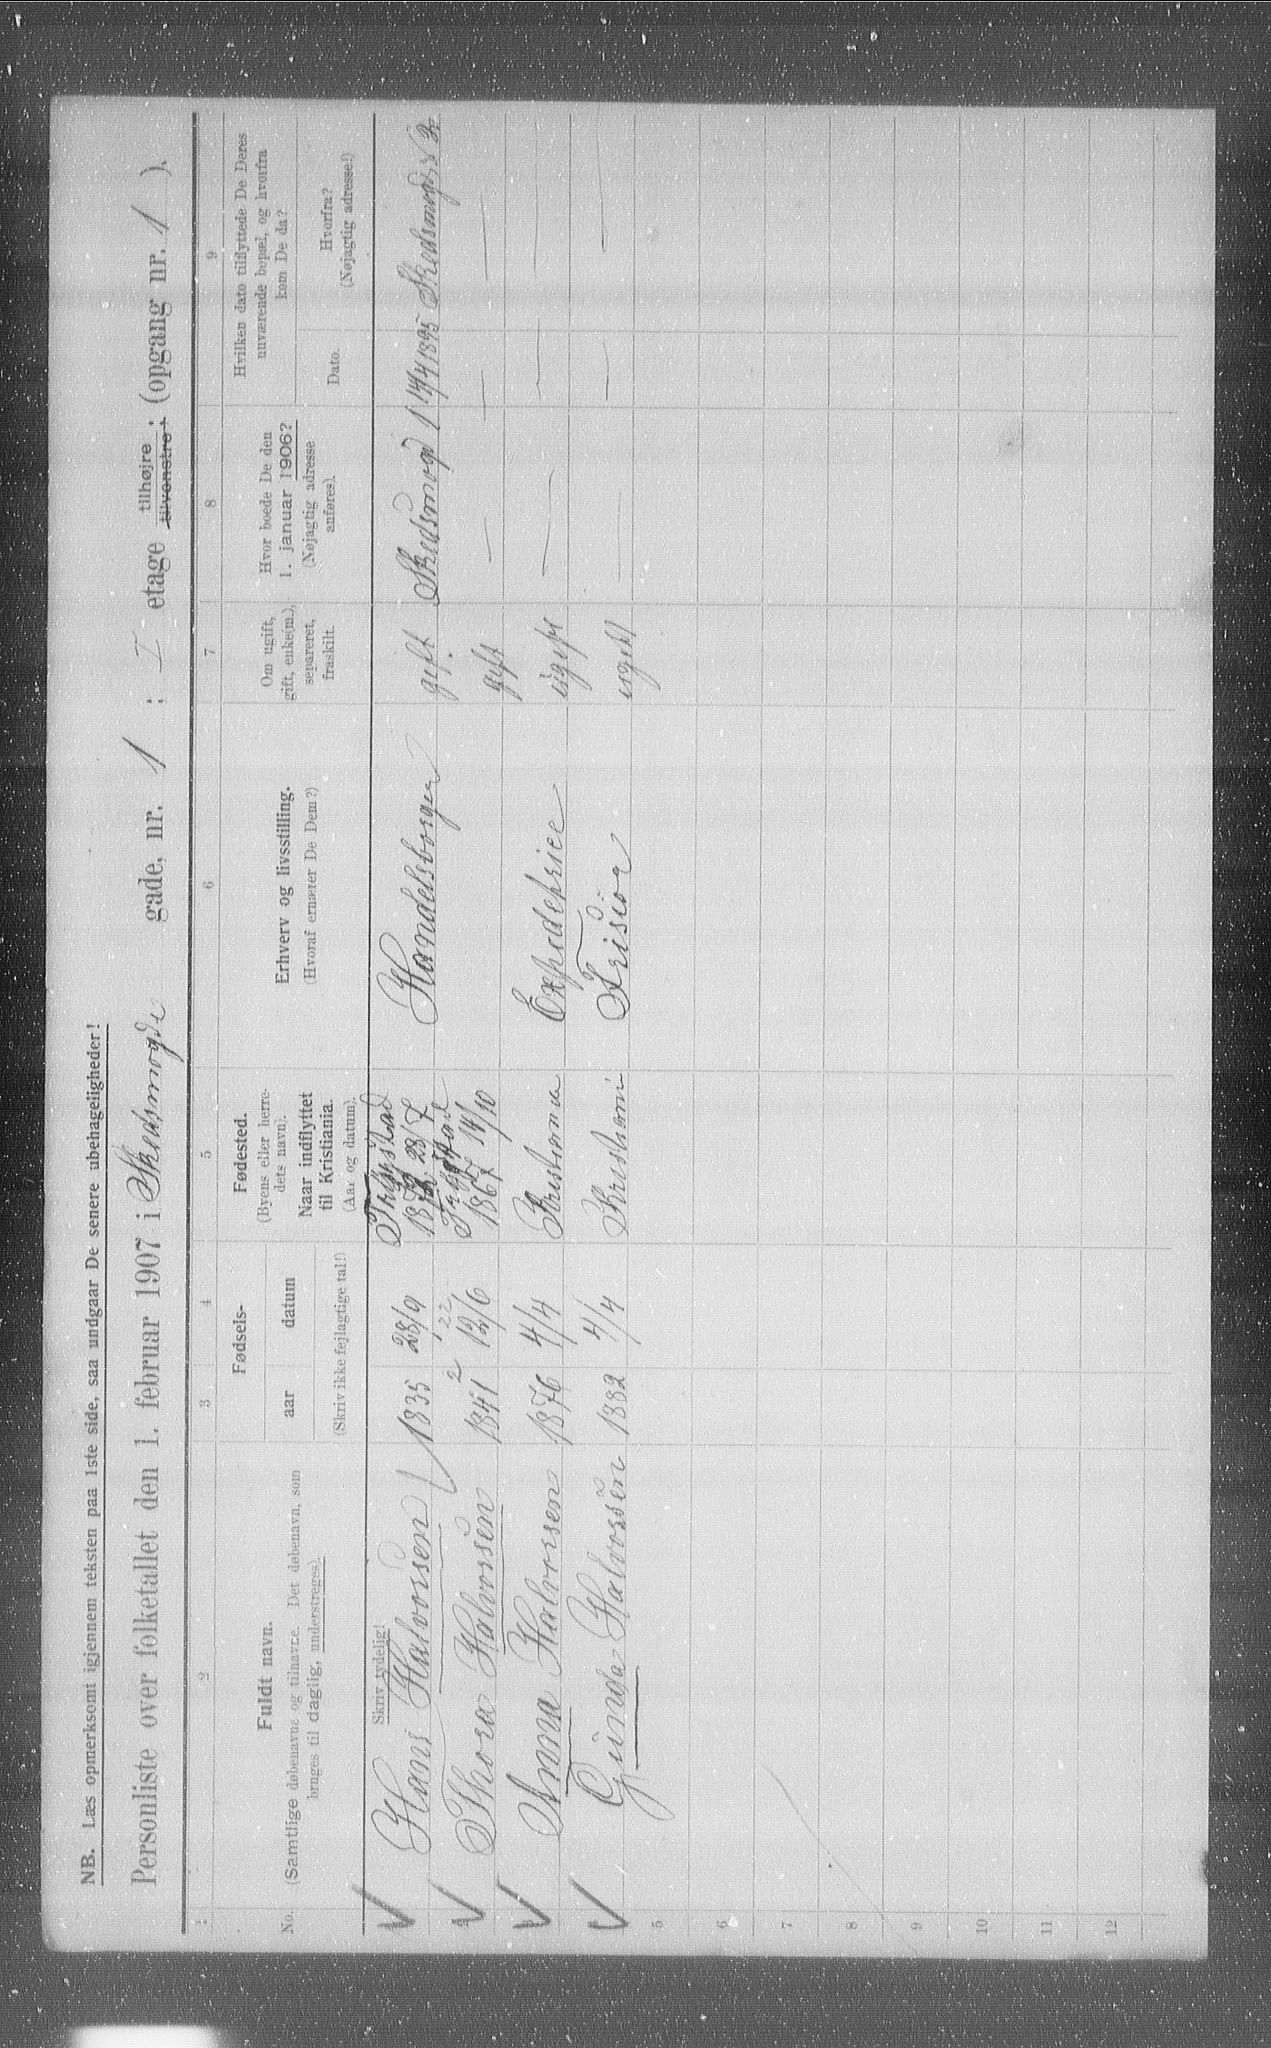 NB. Læs opmerksomt igjennem teksten paa 1ste side, saa undgaar De senere ubehageligheder!
Personliste over folketallet den 1. februar 1907 i Skedsmogde gade, nr. 1 ; I etage tilhøjre ; tilvenstre ; (opgang nr. 1 ).
1 2 3 4 5 6 7 8 9
No.
Fuldt navn.
(Samtlige døbenavne og tilnavne. Det døbenavn, som
bruges til daglig, understreges).
Skriv tydelig!
Fødsels-
aar datum
(Skriv ikke fejlagtige tal!)
Fødested.
(Byens eller herre-
dets navn).
Naar indflyttet
til Kristiania.
(Aar og datum).
Erhverv og livsstilling.
(Hvoraf ernærer De Dem?)
Om ugift,
gift, enke(m.),
separeret,
fraskilt.
Hvor boede De den
1. januar 1906?
(Nøjagtig adresse
anføres).
Hvilken dato tilflyttede De Deres
nuværende bopæl, og hvorfra
kom De da?
Dato.
Hvorfra?
(Nøjagtig adresse!)
Hans Halvorsen 1835 28/9 28/7 Handelsborger gift Skedsmogd 1 14/4 1895
Thora Halvorsen 1841 12/6 1867 14/10 gift — — —
Anna Halvorsen 1876 4/4 Kristiania ugift — — —
Gunda Halvorsen 1882 4/4 Kristiania ugift — — —
5
6
7
8
9
10
11
12